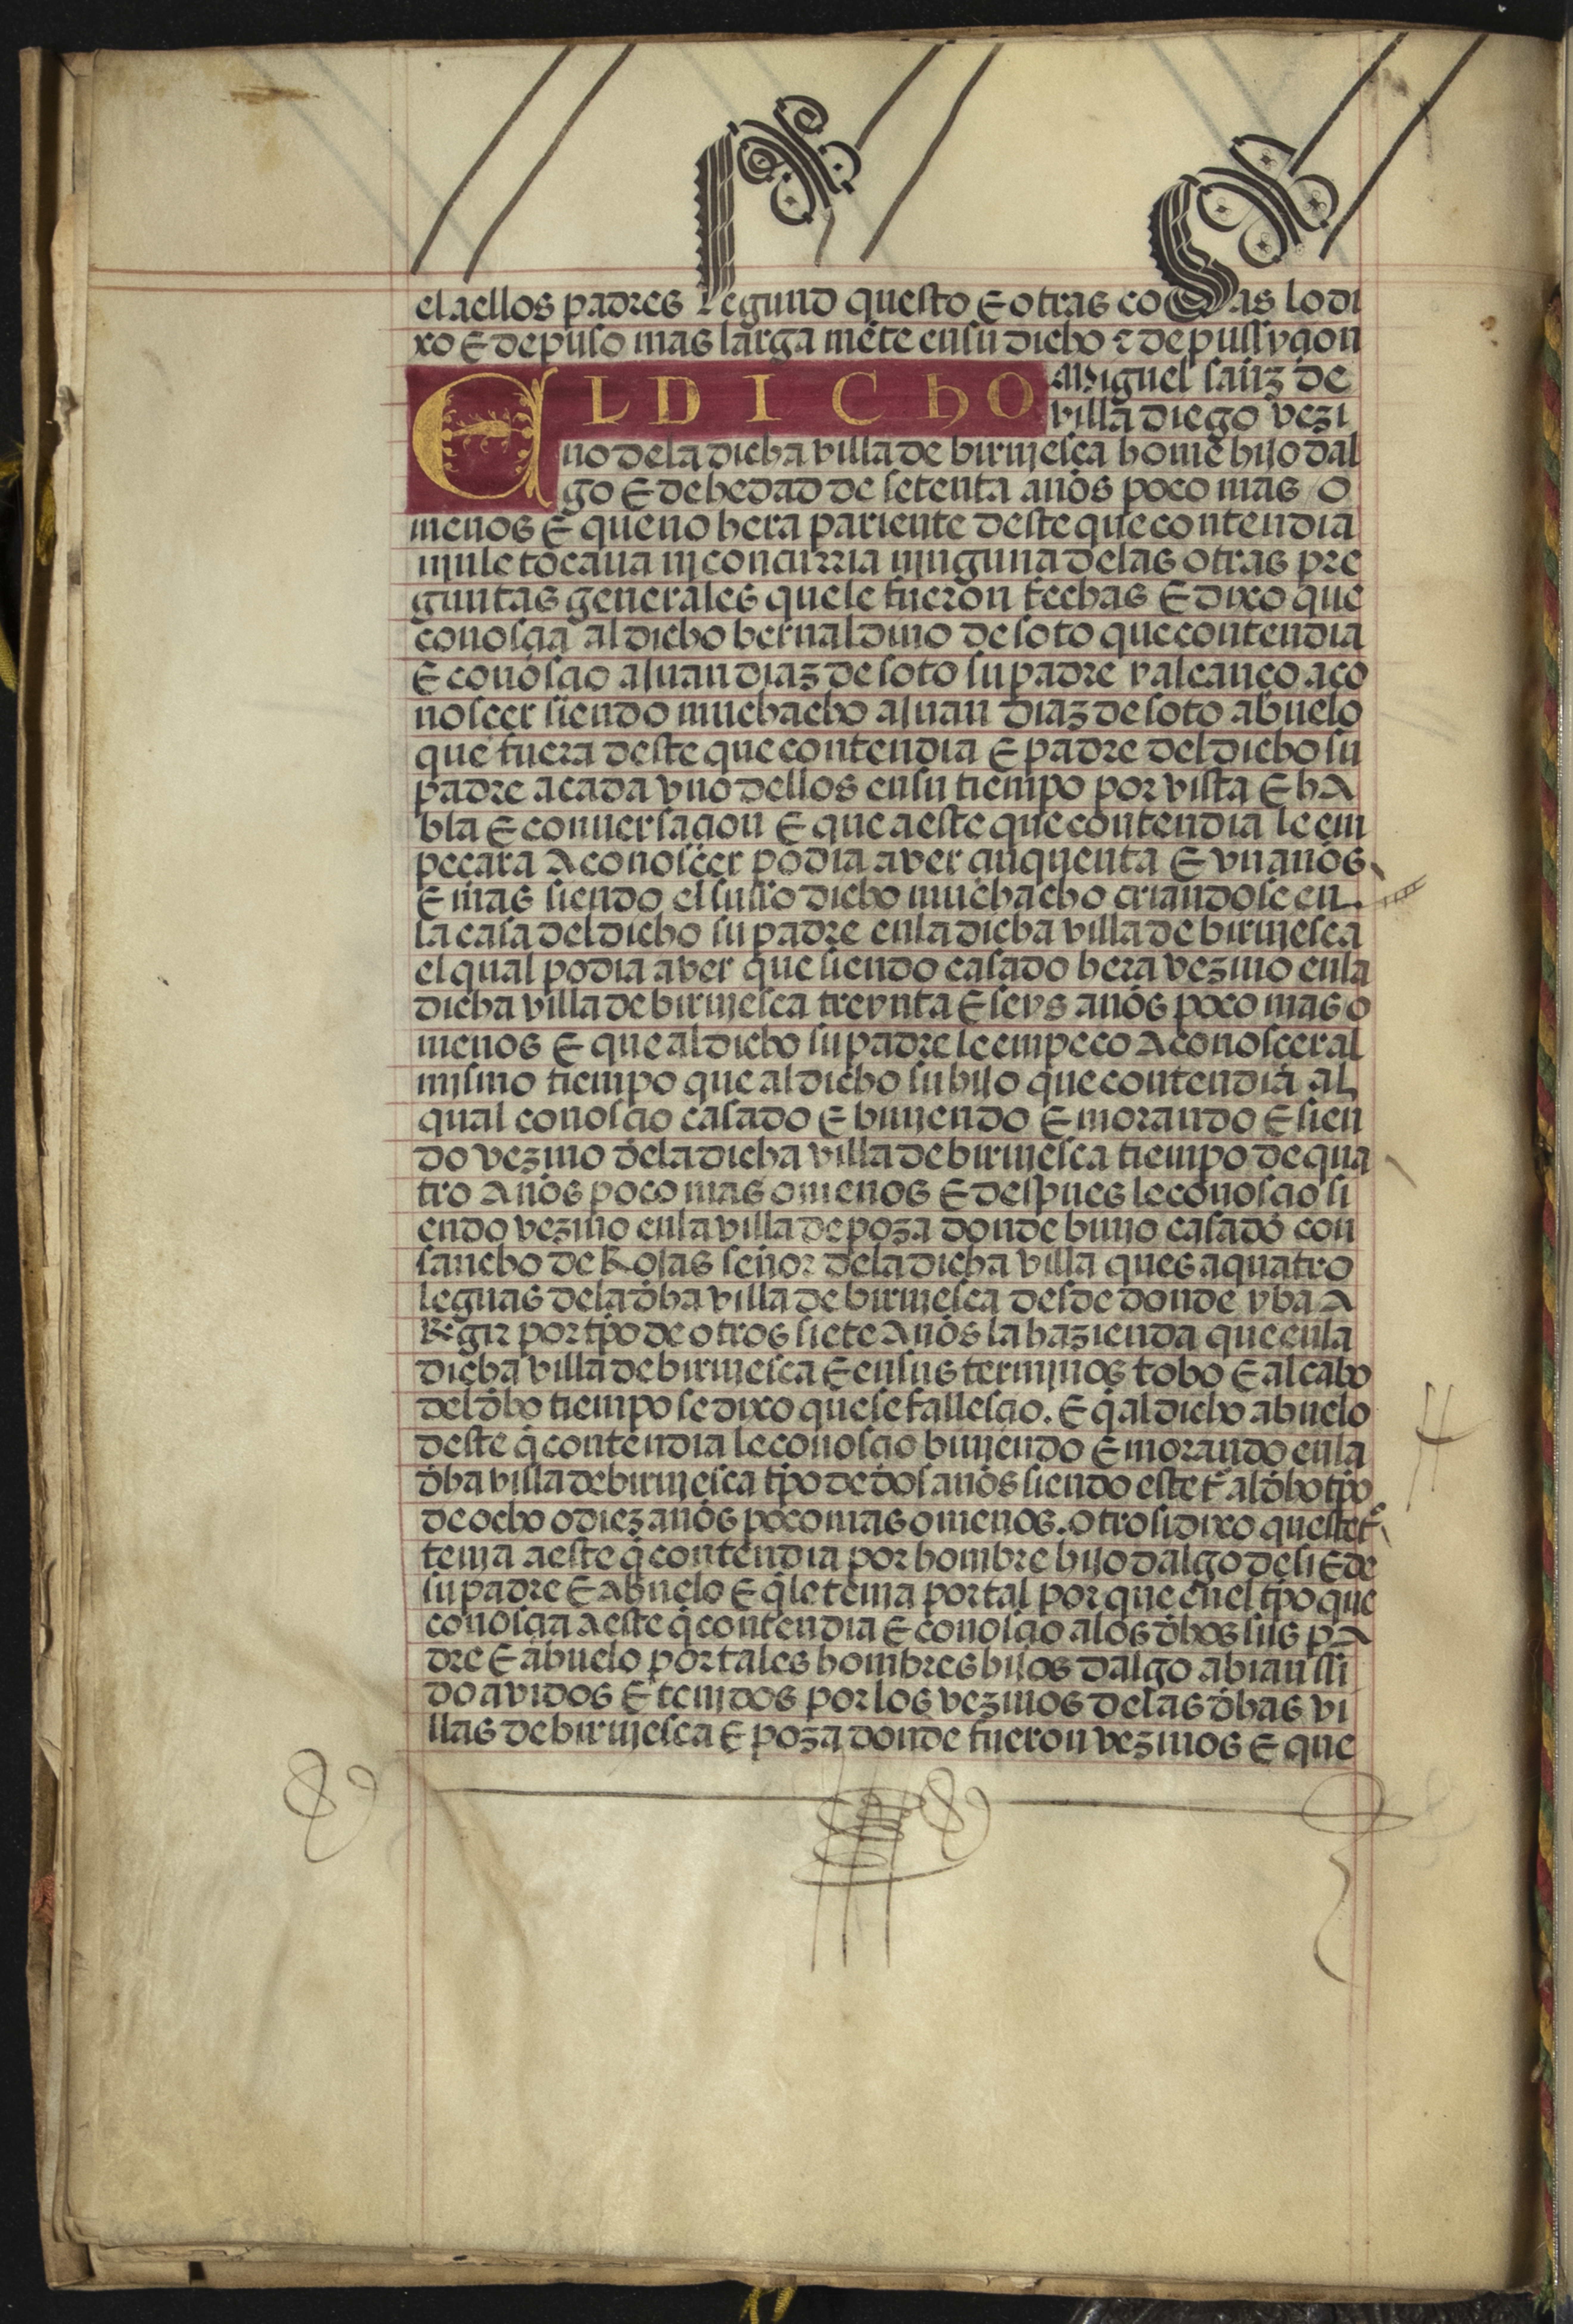 el a ellos padres segund questo E otras cosas lo di
xo E depuso mas larga mēte en su dicho τ depussyçion
EL DICHO Miguel sanz de
villa diego vezi
no de la dicha villa de biruiesca home hijo dal
go E de hedad de setenta años poco mas / o
menos E que no hera pariente deste que contendia
nj nj le tocaua nj concurria njnguna de las otras pre
guntas generales que le fueron fechas E dixo que
conosçia al dicho bernaldino de soto que contendia
E conosçio a Juan diaz de soto su padre y alcanço a co
noscer siendo muchacho a Juan diaz de soto abuelo
que fuera deste que contendia E padre del dicho su
padre a cada vno dellos en su tiempo por vista E hA
bla E conuersaçion E que a este que contendia le em
peçara A conosçer podia aver çinquenta E vn años
E mas siendo el suso dicho muchacho criandose en
la casa del dicho su padre en la dicha villa de birviesca
el qual podia aver que siendo casado hera vezino en la
dicha villa de birviesca treynta E seys años poco mas o
menos E que al dicho su padre le empeço A conoscer al
mismo tiempo que al dicho su hijo que contendia al
qual conosçio casado E biujendo E morando E sien
do vezino de la dicha villa de birviesca tiempo de qua
tro Años poco mas o menos E despues le conosçio si
endo vezino en la villa de poza donde biuio casado con
sancho de Rojas señor de la dicha villa ques a quatro
leguas de la dha villa de birviesca desde donde yba A
Regir por tpo de otros siete Años la hazienda que en la
dicha villa de birviesca E en sus termjnos tobo E al cabo
del dho tiempo se dixo que se fallesçio. E q̄ al dicho abuelo
deste q̄ contendia le conosçio biujendo E morando en la
dha villa de birviesca tpo de dos años siendo este tº al dho tpo
de ocho o diez años poco mas o menos. otrosi dixo queste tº
tenja a este q̄ contendia por hombre hijo dalgo de si E de
su padre E Abuelo E q̄ le tenia por tal por que en el tpo que
conosçia A este q̄ contendia E conosçio a los dhos sus pA
dre E abuelo por tales hombres hijos dalgo abian si
do avidos E tenjdos por los vezinos de las dhas vi
llas de birviesca E poza donde fueron vezinos E que